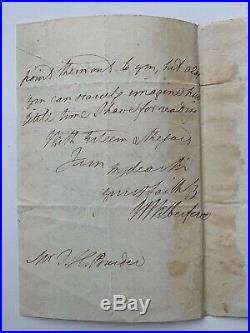 point them out to you, but alas
you can scarcely imagine how
little time I have for reading
With Esteem & Regard
I am
my dear Sir
yours faithfully
W Wilberforce
Mr T. H.